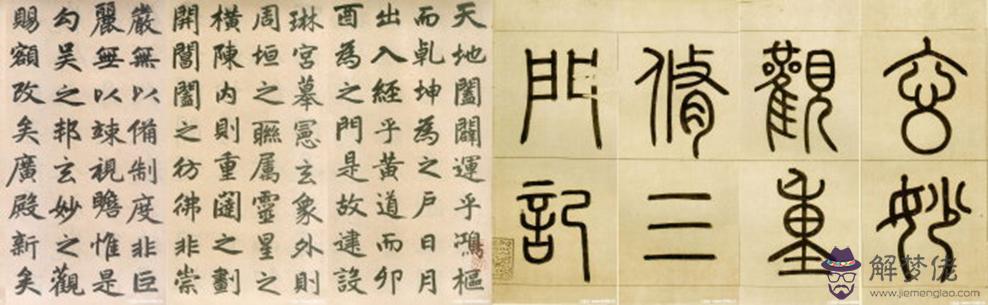 天地闔闢運乎鴻樞
而乹坤為之户日月
出入經乎黃道而卯
酉為之門是故建設
琳宮摹憲玄象外則
周垣之聯属靈星之
橫陳內則重闥之劃
開閶闔之彷彿非崇
嚴無以備制度非巨
麗無以竦視瞻惟是
勾吳之邦玄妙之觀
賜額改矣廣殿新矣
玄妙
觀重
脩三
門記
解梦佬
www.jiemenglao.com